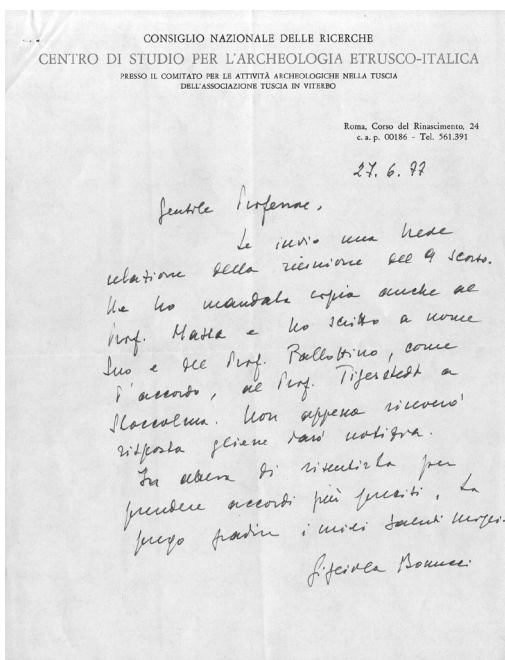 CONSIGLIO NAZIONALE DELLE RICERCHE
CENTRO DI STUDIO PER L'ARCHEOLOGIA ETRUSCO-ITALICA
PRESSO IL COMITATO PER LE ATTIVITÀ ARCHEOLOGICHE NELLA TUSCIA
DELL'ASSOCIAZIONE TUSCIA IN VITERBO
Roma, Corso del Rinascimento, 24
c. a. p. 00186 - Tel. 561.391
27. 6. 77
Gentile Professore,
Le invio una breve
relazione della riunione del 9 scorso.
Ne ho mandata copia anche al
Prof. e ho scritto a nome
Suo e del Prof. Pallottino, come
d'accordo, al Prof. Tigerstedt a
Stoccolma. Non appena riceverò
risposta gliene darò notizia.
In attesa di risentirla per
prendere accordi più precisi, La
prego gradire i miei saluti migliori.
Bonucci